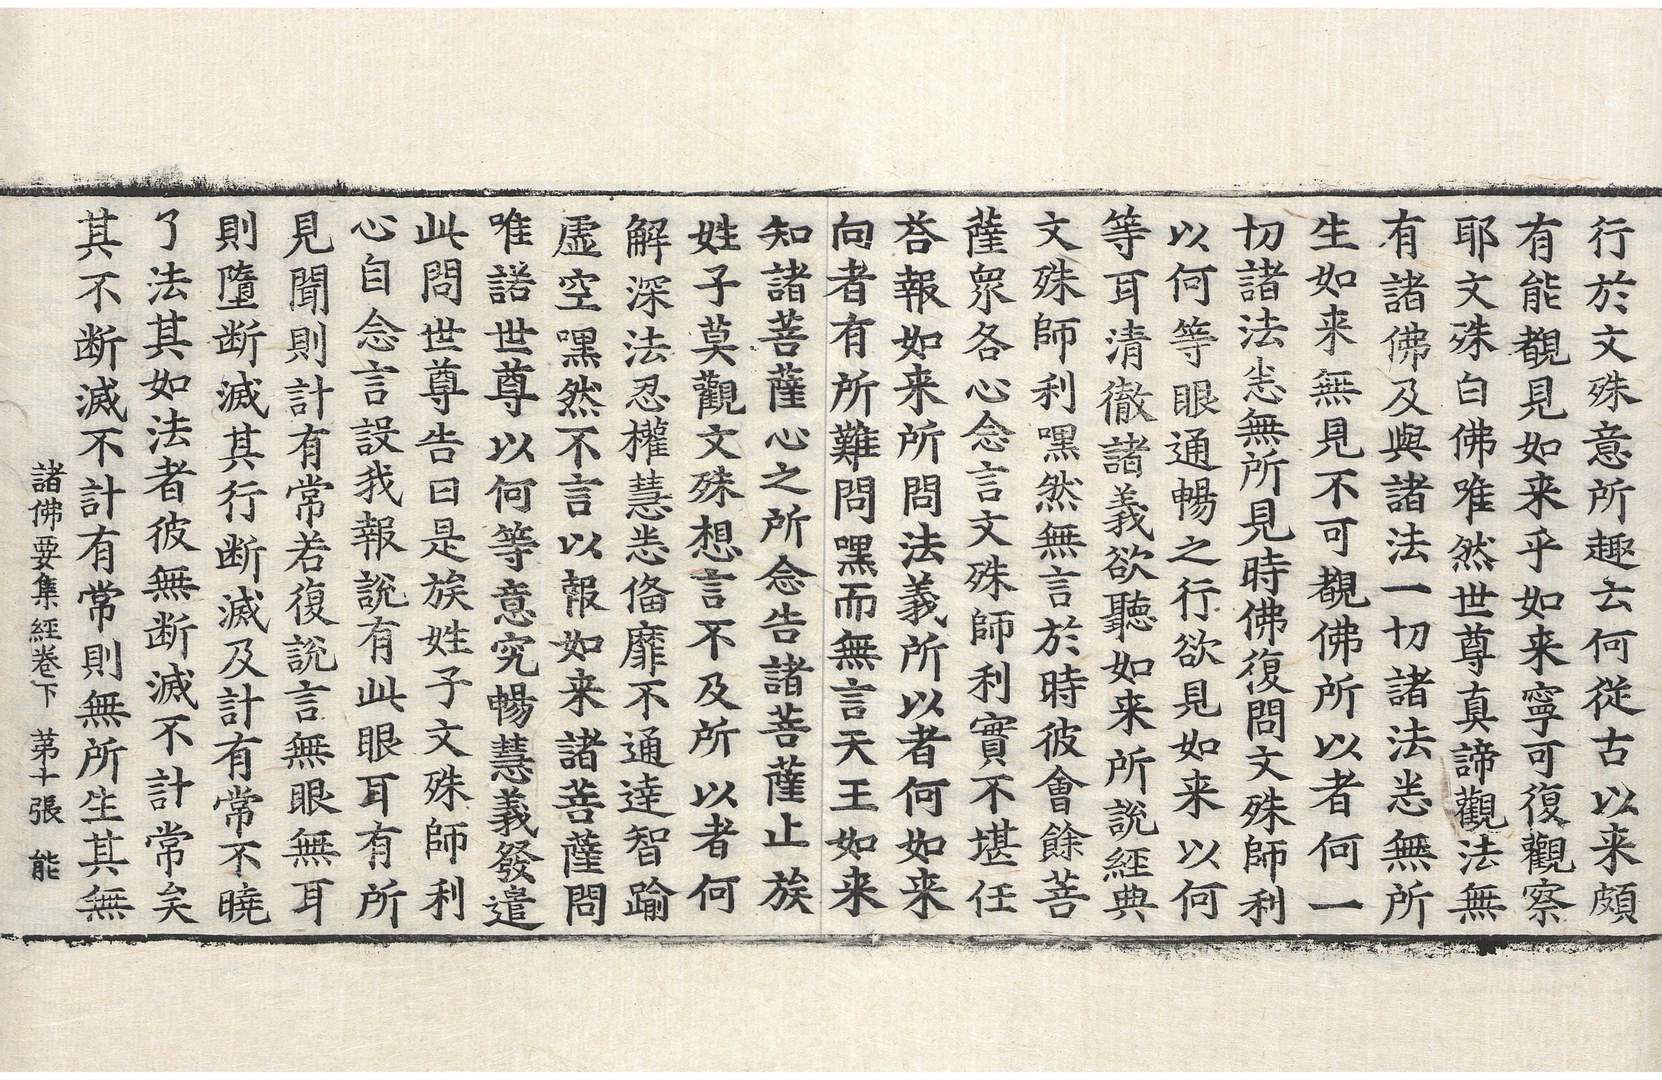 行於文殊意所趣云何從古以来頗
有能覩見如来乎如来寧可復觀察
耶文殊白佛唯然世尊真諦觀法無
有諸佛及與諸法一切諸法悉無所
生如来無見不可覩佛所以者何一
切諸法悉無所見時佛復問文殊師利
以何等眼通暢之行欲見如来以何
等耳清徹諸義欲聽如来所說經典
文殊師利嘿然無言於時彼會餘菩
薩衆各心念言文殊師利實不堪任
荅報如来所問法義所以者何如来
向者有所難問嘿而無言天王如来
知諸菩薩心之所念告諸菩薩止族
姓子莫觀文殊想言不及所以者何
解深法忍權慧悉俻靡不通達智踰
虛空嘿然不言以報如来諸菩薩問
唯諾世尊以何等意究暢慧義發遣
此問世尊告曰是族姓子文殊師利
心自念言設我報說有此眼耳有所
見聞則計有常若復說言無眼無耳
則墮断滅其行断滅及計有常不曉
了法其如法者彼無断滅不計常矣
其不断滅不計有常則無所生其無
諸佛要集經卷下 第十張 能